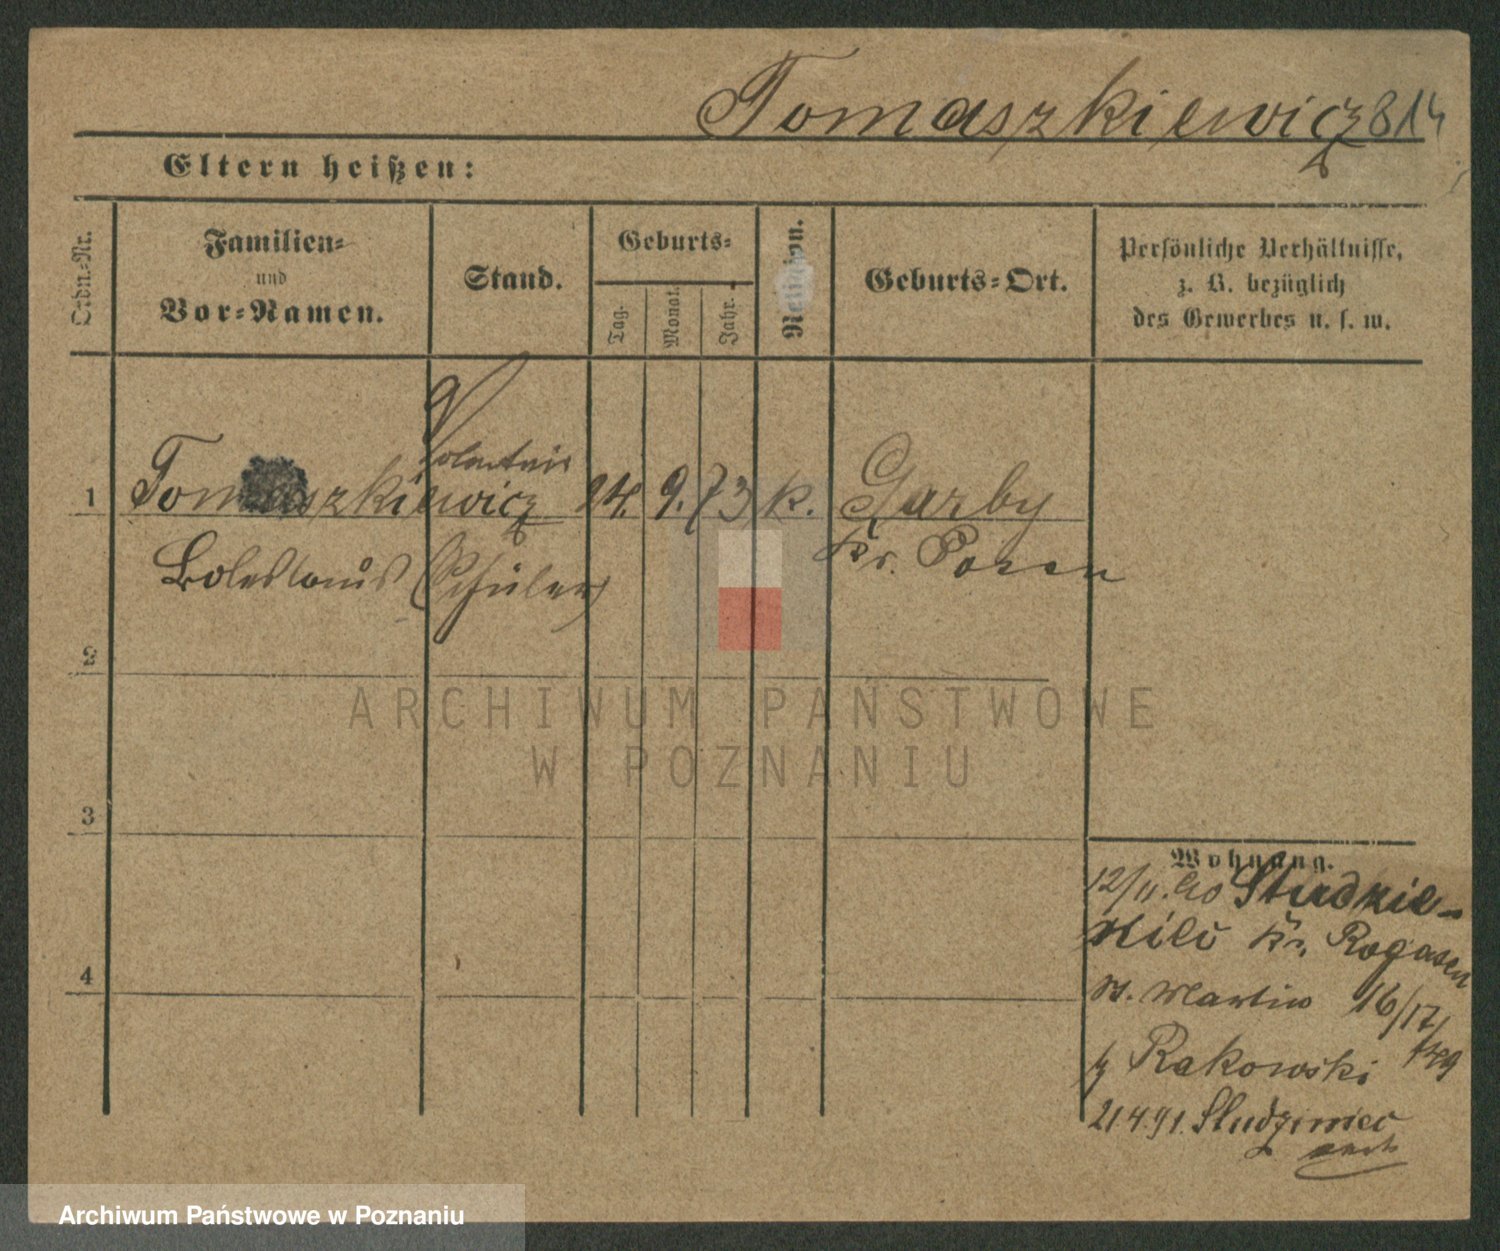 Tomaszkiewicz 814
Eltern heißen:
Ordn.-Nr.
Familien-
und
Vor-Namen.
Stand.
Geburts-
Tag.
Monat.
Jahr.
Religion.
Geburts-Ort.
Persönliche Verhältnisse,
z. B. bezüglich
des Gewerbes u. s. w.
Volontair
1 Tomaszkiewicz 24. 9. 73 k. Garby
Boleslaus (Schüler) Kr. Posen
2
3
4
Wohnung.
12/11. 90
Kr. Rogasen
St. Martin 16/17
Rakowski
21.4.91. Studzimiec
ARCHIWUM PAŃSTWOWE
W POZNANIU
Archiwum Państwowe w Poznaniu